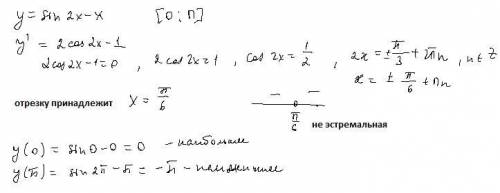 y = sin 2x - x [0; π]
y' = 2cos2x - 1
2cos2x - 1 = 0, 2cos2x = 1, cos 2x = 1/2, 2x = ± π/3 + 2πn, n ∈ Z
x = ± π/6 + πn
отрезку принадлежит x = π/6
− −
π/6 не эстремальная
y(0) = sin0 - 0 = 0 - наибольшее
y(π) = sin 2π - π = -π - наименьшее